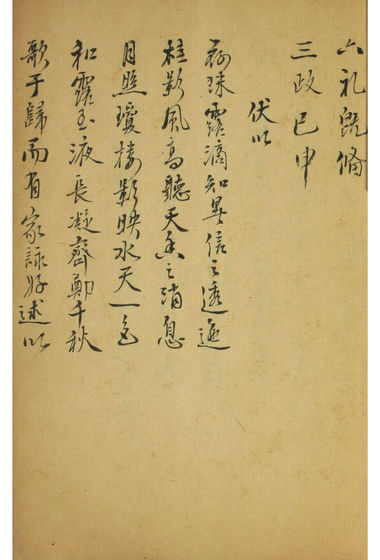 六礼既備
三政已申
伏以
珠露滴知信之透
桂影風高聽天香之消息
月照瓊樓影映水天一色
和露玉液長凝齊鄭千秋
歌于歸而有家詠好逑以